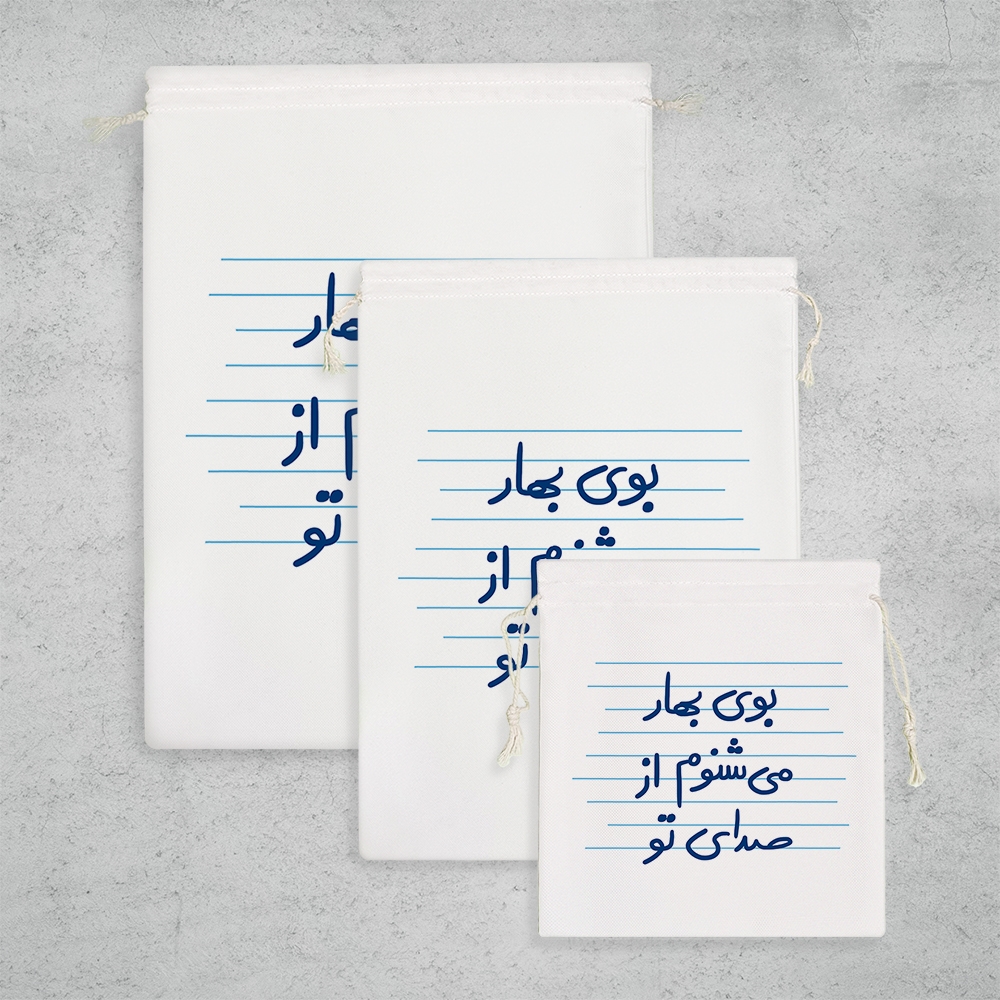 بهار
م از
تو
بوی بهار
شنوم از
تو
بوی بهار
می‌شنوم از
صدای تو